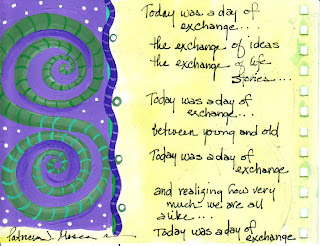 Today was a day of
exchange....
the exchange of ideas
the exchange of life
stories....
Today was a day of
exchange....
between young and old
Today was a day of
exchange
and realizing how very
much we are all
alike....
Today was a day of
exchange
Patricia J. Mosca